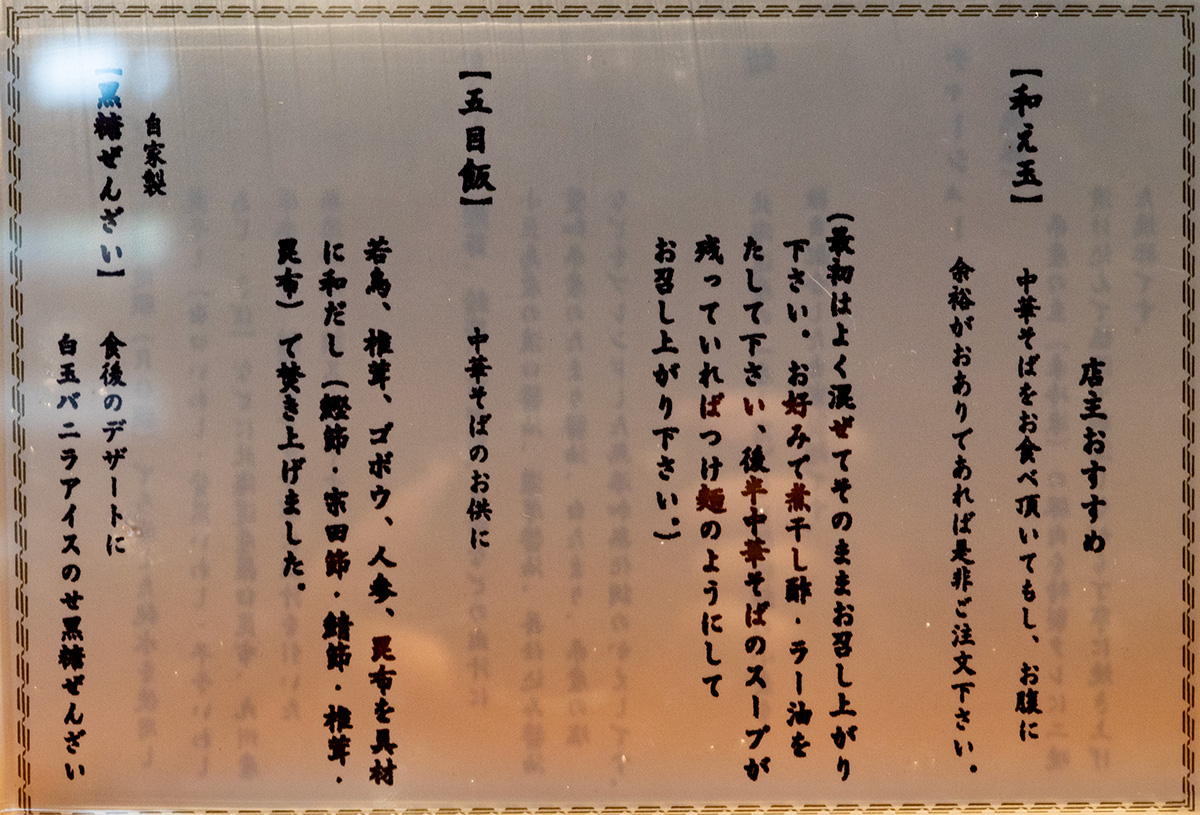 店主おすすめ
【和え玉】 中華そばをお食べ頂いてもし、お腹に
余裕がおありであれば是非ご注文下さい。
（最初はよく混ぜてそのままお召し上がり
下さい。お好みで煮干し酢・ラー油を
たして下さい、後半中華そばのスープが
残っていればつけ麺のようにして
お召し上がり下さい。）
【五目飯】 中華そばのお供に
若鳥、椎茸、ゴボウ、人参、昆布を具材
に和だし（鰹節・宗田節・鯖節・椎茸・
昆布）で焚き上げました。
自家製
【黒糖ぜんざい】 食後のデザートに
白玉バニラアイスのせ黒糖ぜんざい